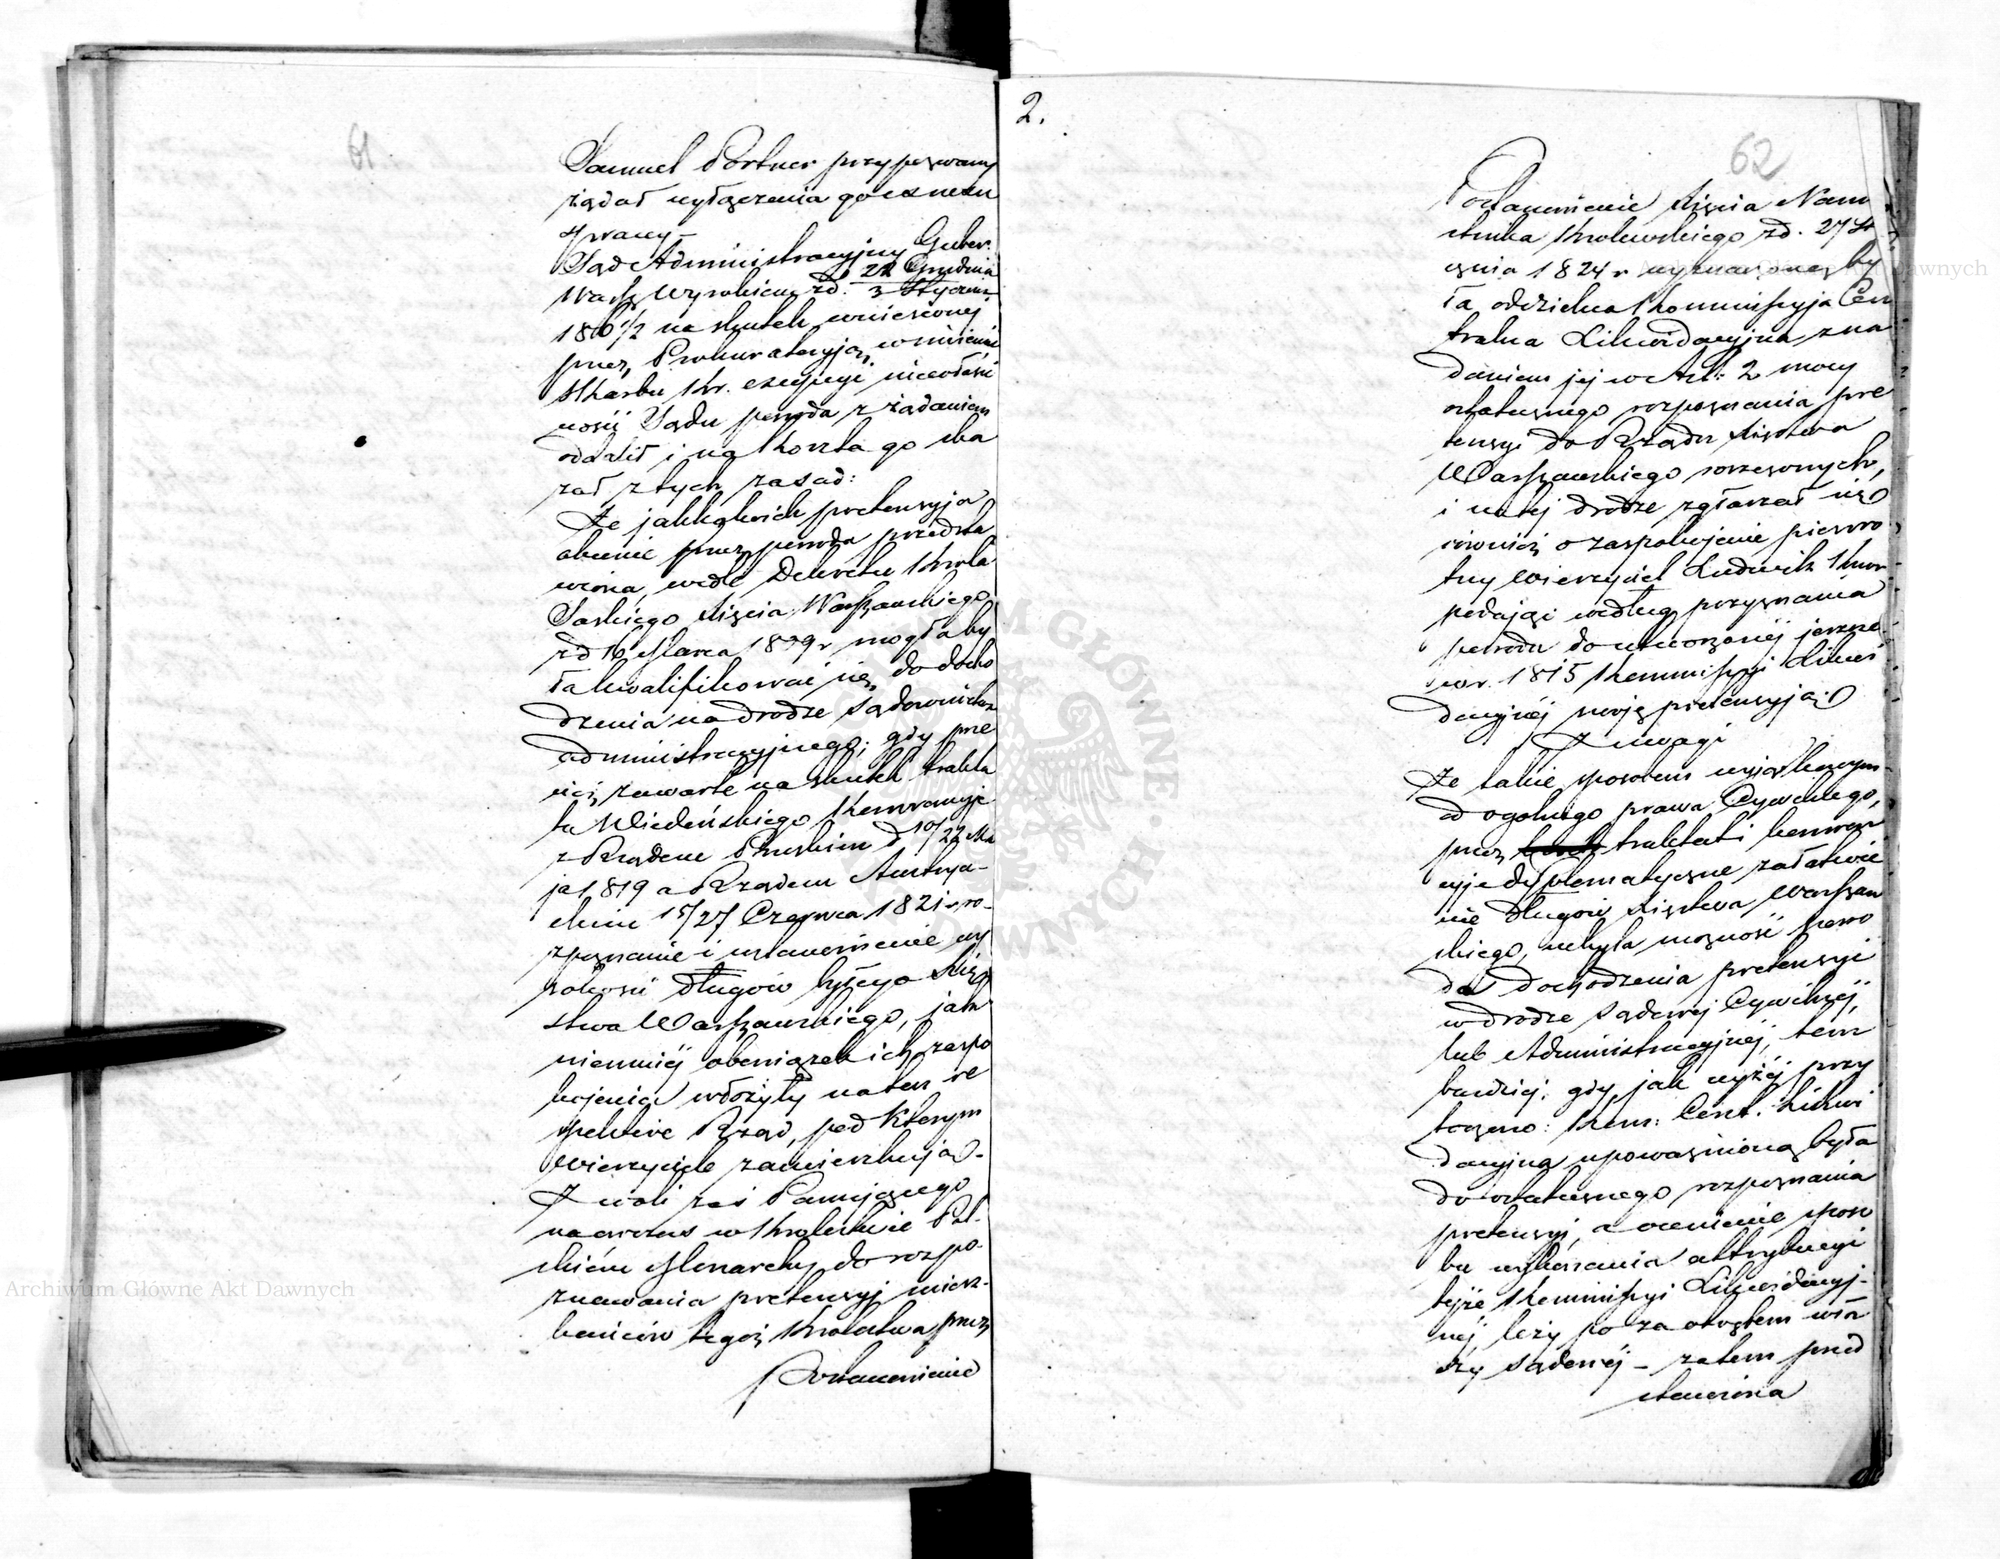 61
Samuel Portner przypozwany
żądał wyłączenia go z
sprawy –
Sąd Administracyjny Guber.
Warsz. wyrokiem zd. 22 Grudnia
3 Stycznia
186½ na skutek wniesionej
przez Prokuratoryją w imieniu
Skarbu Kr. excepcyi niewłaści
wości Sądu powoda z żądaniem
oddalił i na koszta go ska
zał z tych zasad:
Że jakkolwiek pretensyja
obecnie przez powoda przedsta
wiona, wedle Dekretu Króla
Saskiego Xięcia Warszawskiego
zd 16 Marca 1809 r mogłaby
kwalifikować się do docho
dzenia na drodze sądownictwa
administracyjnego; gdy prze
cież zawarte na skutek trakta
tu Wiedeńskiego Konwencyje
z Rządem Pruskim d 10/22 Ma
ja 1819 a Rządem Austrya-
ckim 15/27 Czerwca 1821 ro-
zpoznanie i ustanowienie wy
sokości długów byłego Xięz
stwa Warszawskiego, jako
niemniéj obowiązek ich zaspo
kojenia włożyły na ten re
spective Rząd, pod którym
Wierzyciele zamieszkują.-
Z woli zaś Panującego
naówczas w Królestwie Pol-
skiém Monarchy do rozpo-
znawania pretensyj miesz-
kańców tegoż Królestwa przez
Postanowienie
2.
62
Postanowienie Xięcia Namie
stnika Królewskiego zd. 27 St
cznia 1824 r wyznaczoną by
ła oddzielna Kommissyja Cen
tralna Likwidacyjna z na
daniem jej w Art: 2 mocy
ostatecznego rozpoznania pre
tensyj do Rządu Xięstwa
Warszawskiego roszczonych,
i na tej drodze zgłaszał się
również o zaspokojenie pierwo
tny Wierzyciel Ludwik
podając według przyznania
powoda do utworzonéj jeszcze
w r. 1815 Kommissyi Likwi
dacyjnéj swoję pretensyją;
Z uwagi
Że takie sposobem wyjątkowym
od ogólnego prawa Cywilnego,
przez traktati i konwen
cyje dyplomatyczne załatwie
nie długów Xięstwa Warszaw
skiego, uchyla możność powo
da dochodzenia pretensyi
w drodze sądowéj Cywilnéj,
lub Administracyjnéj, tem
bardziéj, gdy jak wyżéj przy
toczono: Kom: Cent. Likwi
dacyjna upoważnioną była
do ostatecznego rozpoznania
pretensyj, a ocenienie sposo
bu wykonania attrybucyi
tejże Kommissyi Likwidacyj-
néj leży po za obrębem wła
dzy sądowéj – zatem przed
stawiona